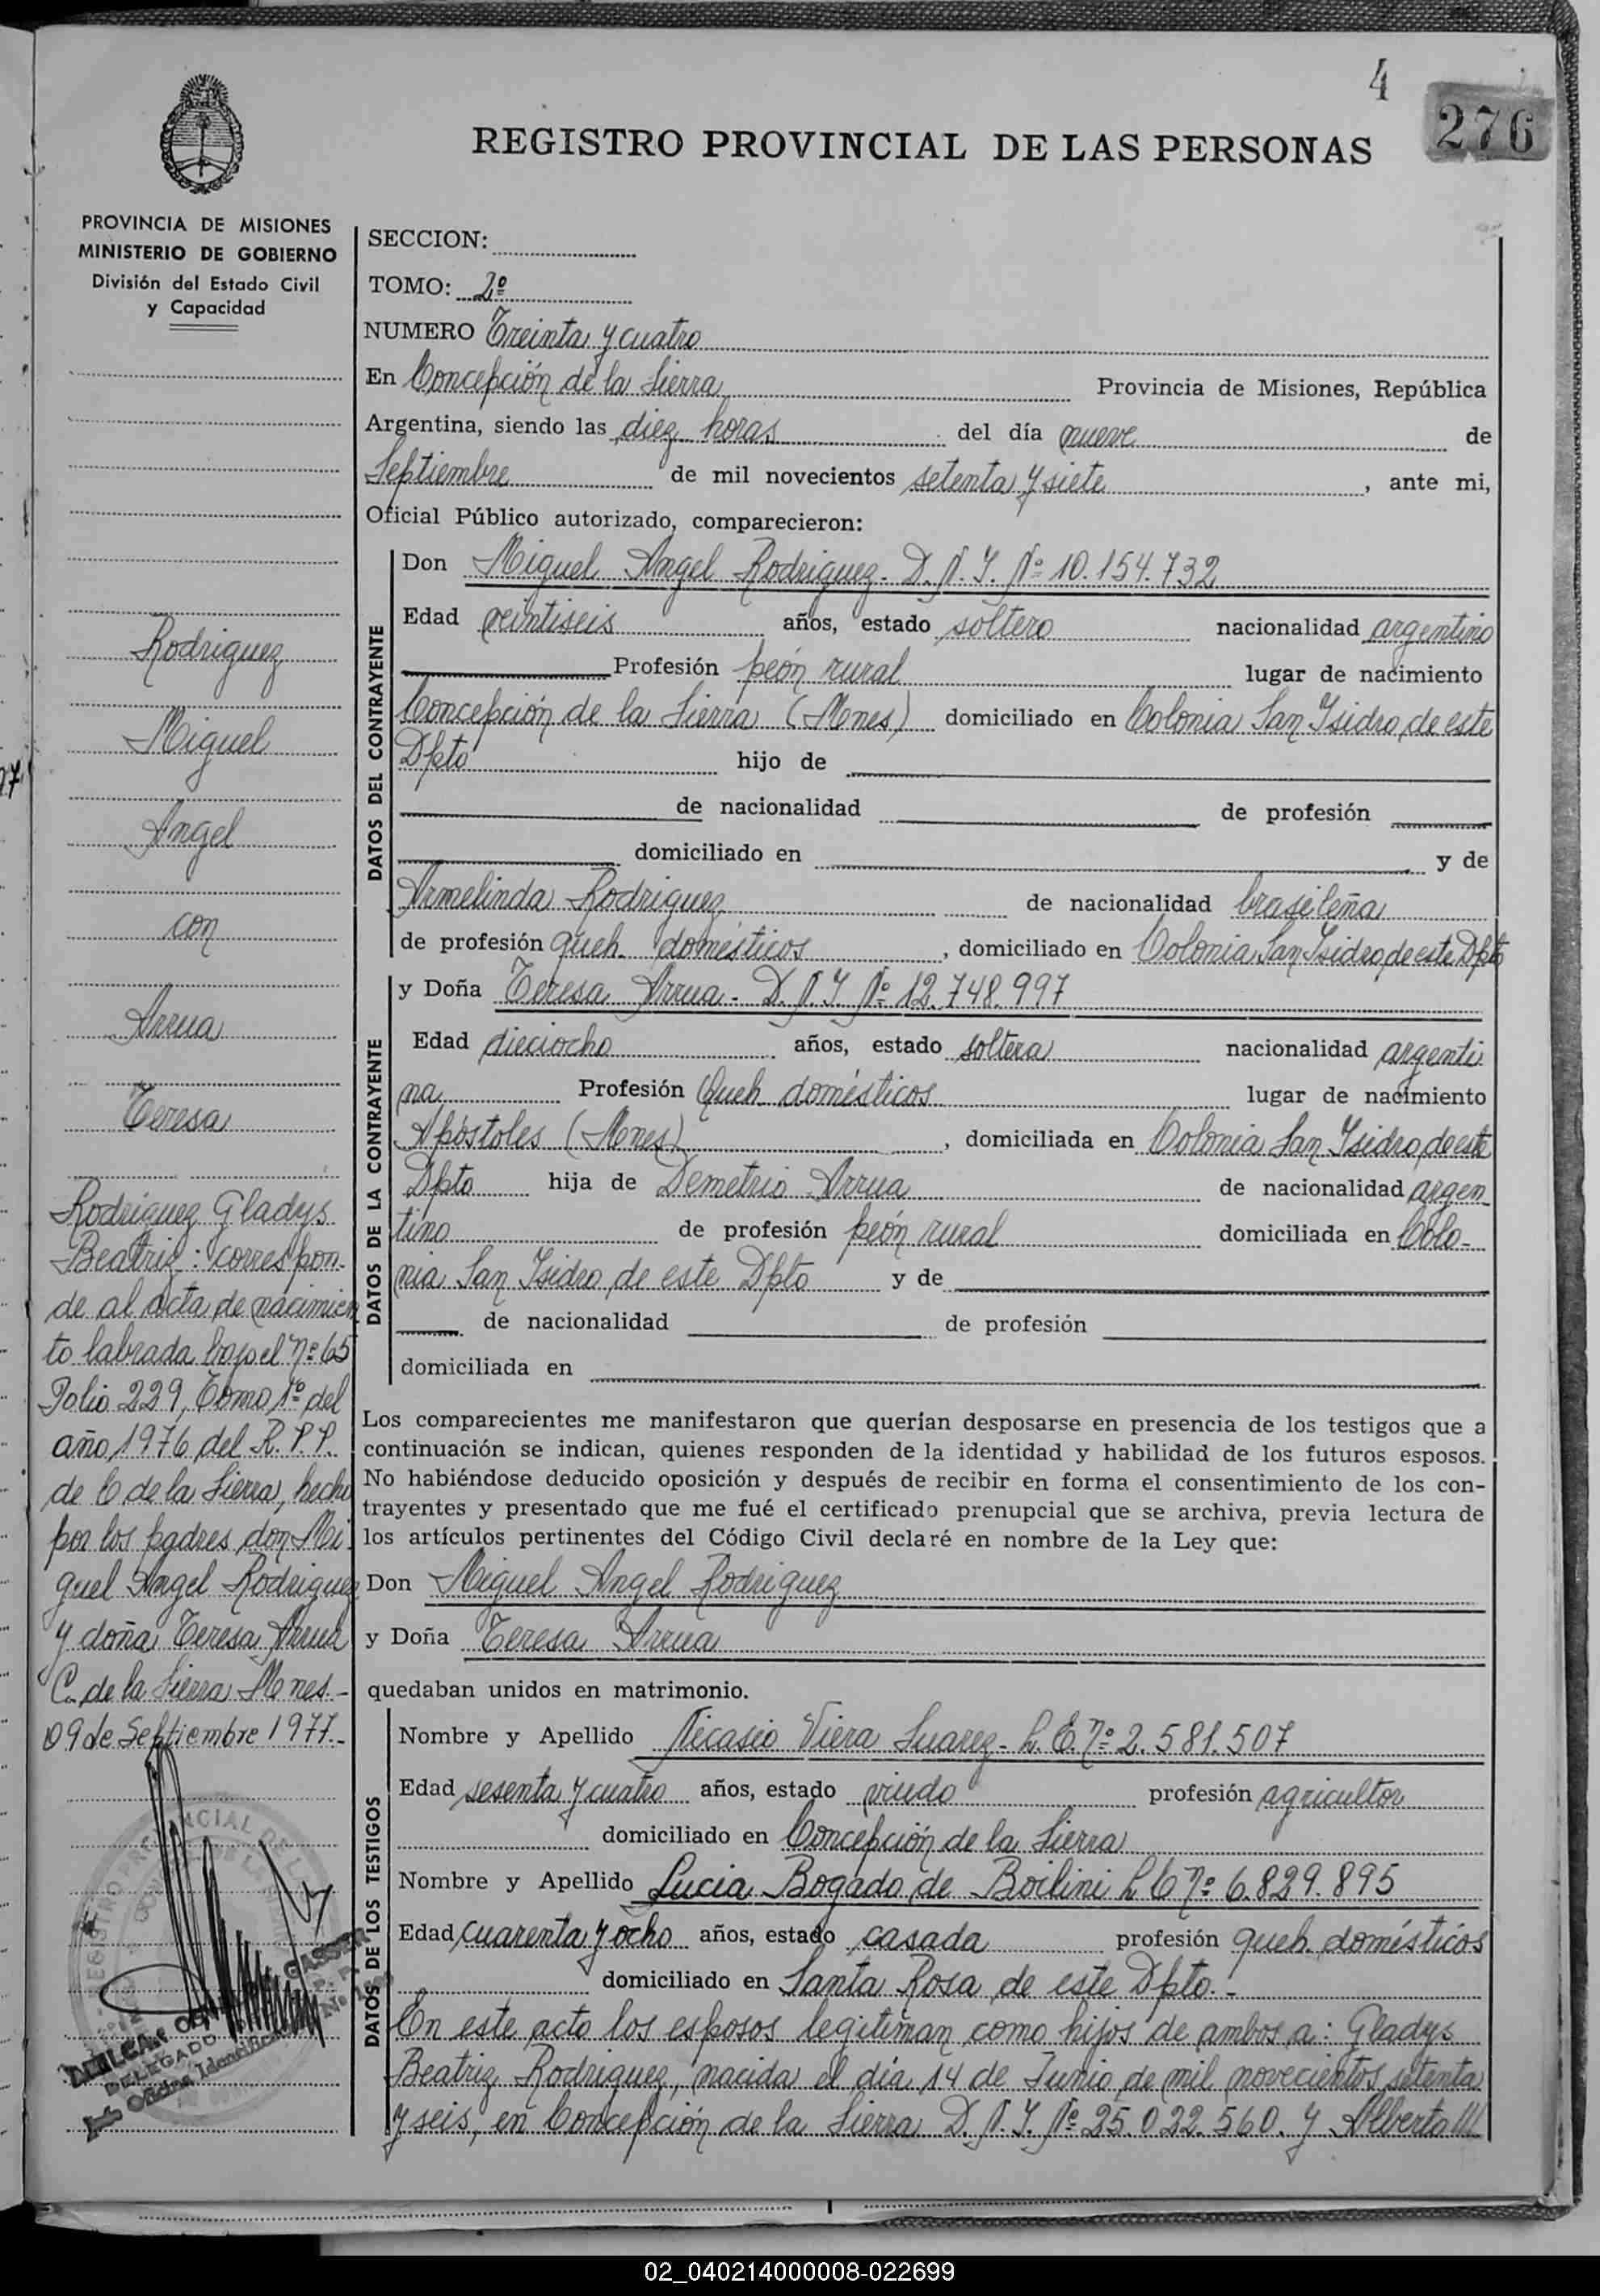 4
276
REGISTRO PROVINCIAL DE LAS PERSONAS
PROVINCIA DE MISIONES
MINISTERIO DE GOBIERNO
División del Estado Civil
y Capacidad
Rodriguez
Miguel
Angel
con
Arrua
Teresa
Rodriguez Gladys
Beatriz: correspon-
de al acta de nacimien
to labrada bajo el Nº 65
Folio 229, Tomo 1º del
año 1976 del R.P.P.
de C de la Sierra, hecha
por los padres don Mi
guel Angel Rodriguez
y doña Teresa Arrua
C. de la Sierra Mnes.-
09 de Septiembre 1977.-
GASSER
DELEGADO
Oficina Identific
SECCION:
TOMO: 2º
NUMERO Treinta y cuatro
En Concepción de la Sierra Provincia de Misiones, República
Argentina, siendo las diez horas del día nueve de
Septiembre de mil novecientos setenta y siete, ante mi,
Oficial Público autorizado, comparecieron:
DATOS DEL CONTRAYENTE
Don Miguel Angel Rodriguez- D.N.I. Nº 10.154.732
Edad veintiseis años, estado soltero nacionalidad argentino
Profesión peón rural lugar de nacimiento
Concepción de la Sierra (Mnes) domiciliado en Colonia San Isidro, de este
Dpto hijo de
de nacionalidad de profesión
domiciliado en y de
Armelinda Rodriguez de nacionalidad brasileña
de profesión queh. domésticos, domiciliado en Colonia San Isidro, de este Dpto
DATOS DE LA CONTRAYENTE
y Doña Teresa Arrua- D.N.I Nº 12.748.997
Edad dieciocho años, estado soltera nacionalidad argenti
na Profesión Queh domésticos lugar de nacimiento
Apóstoles (Mnes), domiciliada en Colonia San Isidro, de este
Dpto hija de Demetrio Arrua de nacionalidad argen
tino de profesión peón rural domiciliada en Colo-
nia San Isidro, de este Dpto y de
de nacionalidad de profesión
domiciliada en
Los comparecientes me manifestaron que querían desposarse en presencia de los testigos que a
continuación se indican, quienes responden de la identidad y habilidad de los futuros esposos.
No habiéndose deducido oposición y después de recibir en forma el consentimiento de los con-
trayentes y presentado que me fué el certificado prenupcial que se archiva, previa lectura de
los artículos pertinentes del Código Civil declaré en nombre de la Ley que:
Don Miguel Angel Rodriguez
y Doña Teresa Arrua
quedaban unidos en matrimonio.
DATOS DE LOS TESTIGOS
Nombre y Apellido Nicasio Viera Suarez- L.E. Nº 2.581.507
Edad sesenta y cuatro años, estado viudo profesión agricultor
domiciliado en Concepción de la Sierra
Nombre y Apellido Lucia Bogado de Boilini L C Nº 6.829.895
Edad cuarenta y ocho años, estado casada profesión queh. domésticos
domiciliado en Santa Rosa de este Dpto.-
En este acto los esposos legitiman como hijos de ambos a: Gladys
Beatriz Rodriguez, nacida el día 14 de Junio de mil novecientos setenta
y seis, en Concepción de la Sierra D.N.I. Nº 25.022.560. y Alberto
02_040214000008-022699